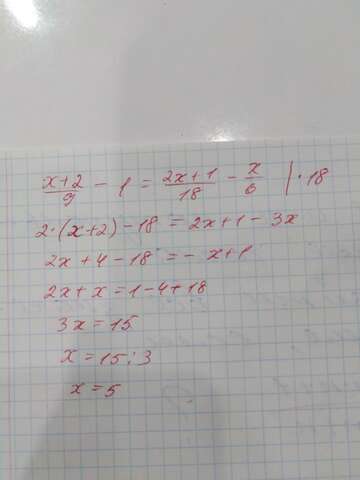 x+2/9 - 1 = 2x+1/18 - x/6 | ·18
2·(x+2)-18 = 2x+1-3x
2x+4-18 = - x+1
2x+x=1-4+18
3x=15
x=15:3
x=5